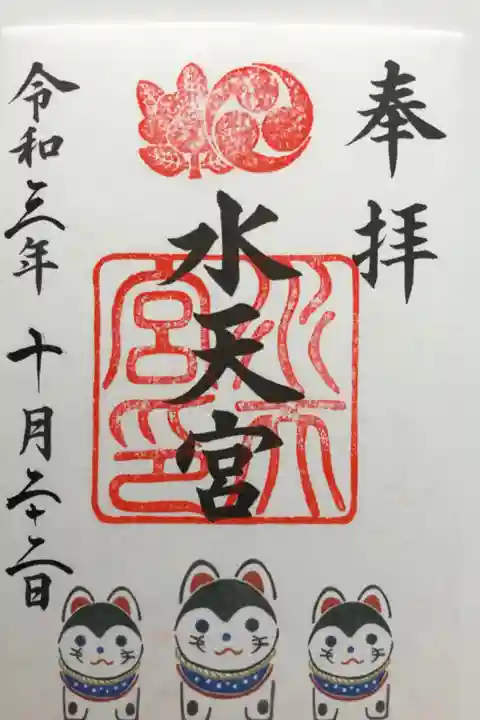 奉拝
水天宮
水天宮印
令和三年 十月二十二日